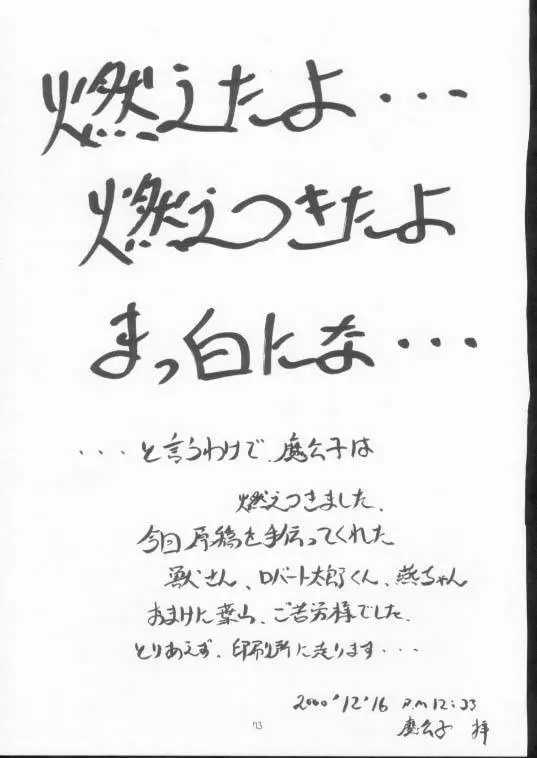 燃えたよ・・・
燃えつきたよ
まっ白にな・・・
・・・と言うわけで、磨公子は
燃えつきました、
今回原稿を手伝ってくれた
獣さん、ロバート太郎くん、燕ちゃん
おまけに葉山、ご苦労様でした、
とりあえず、印刷所に走ります・・・
2000'12'16 P.M 12:33
磨公子 拝
73